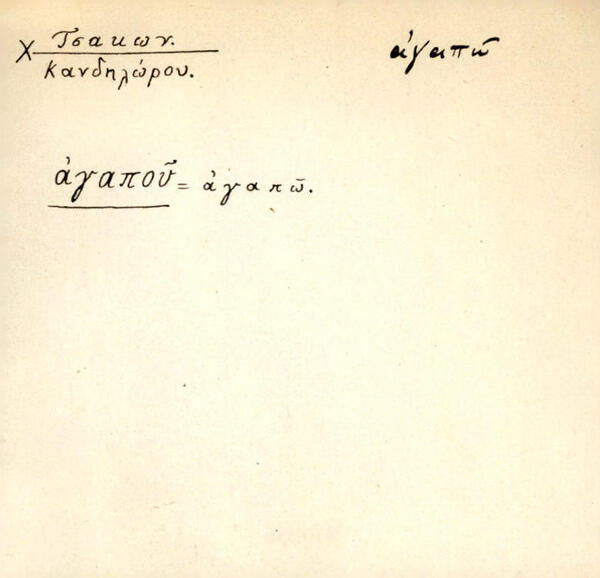 Χ Τσακων. ἀγαπῶ
Κανδηλώρου.
ἀγαποῦ = ἀγαπῶ.